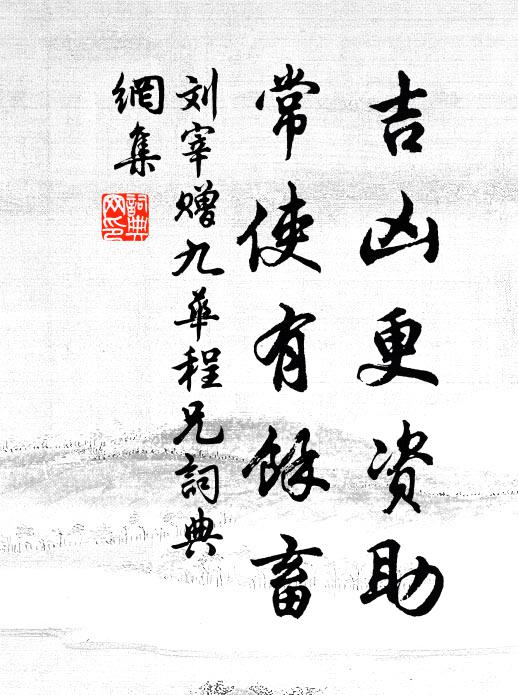 吉凶更资助
常使有餘畜
刘宰赠九华程兄词典
網集
詞典
网印